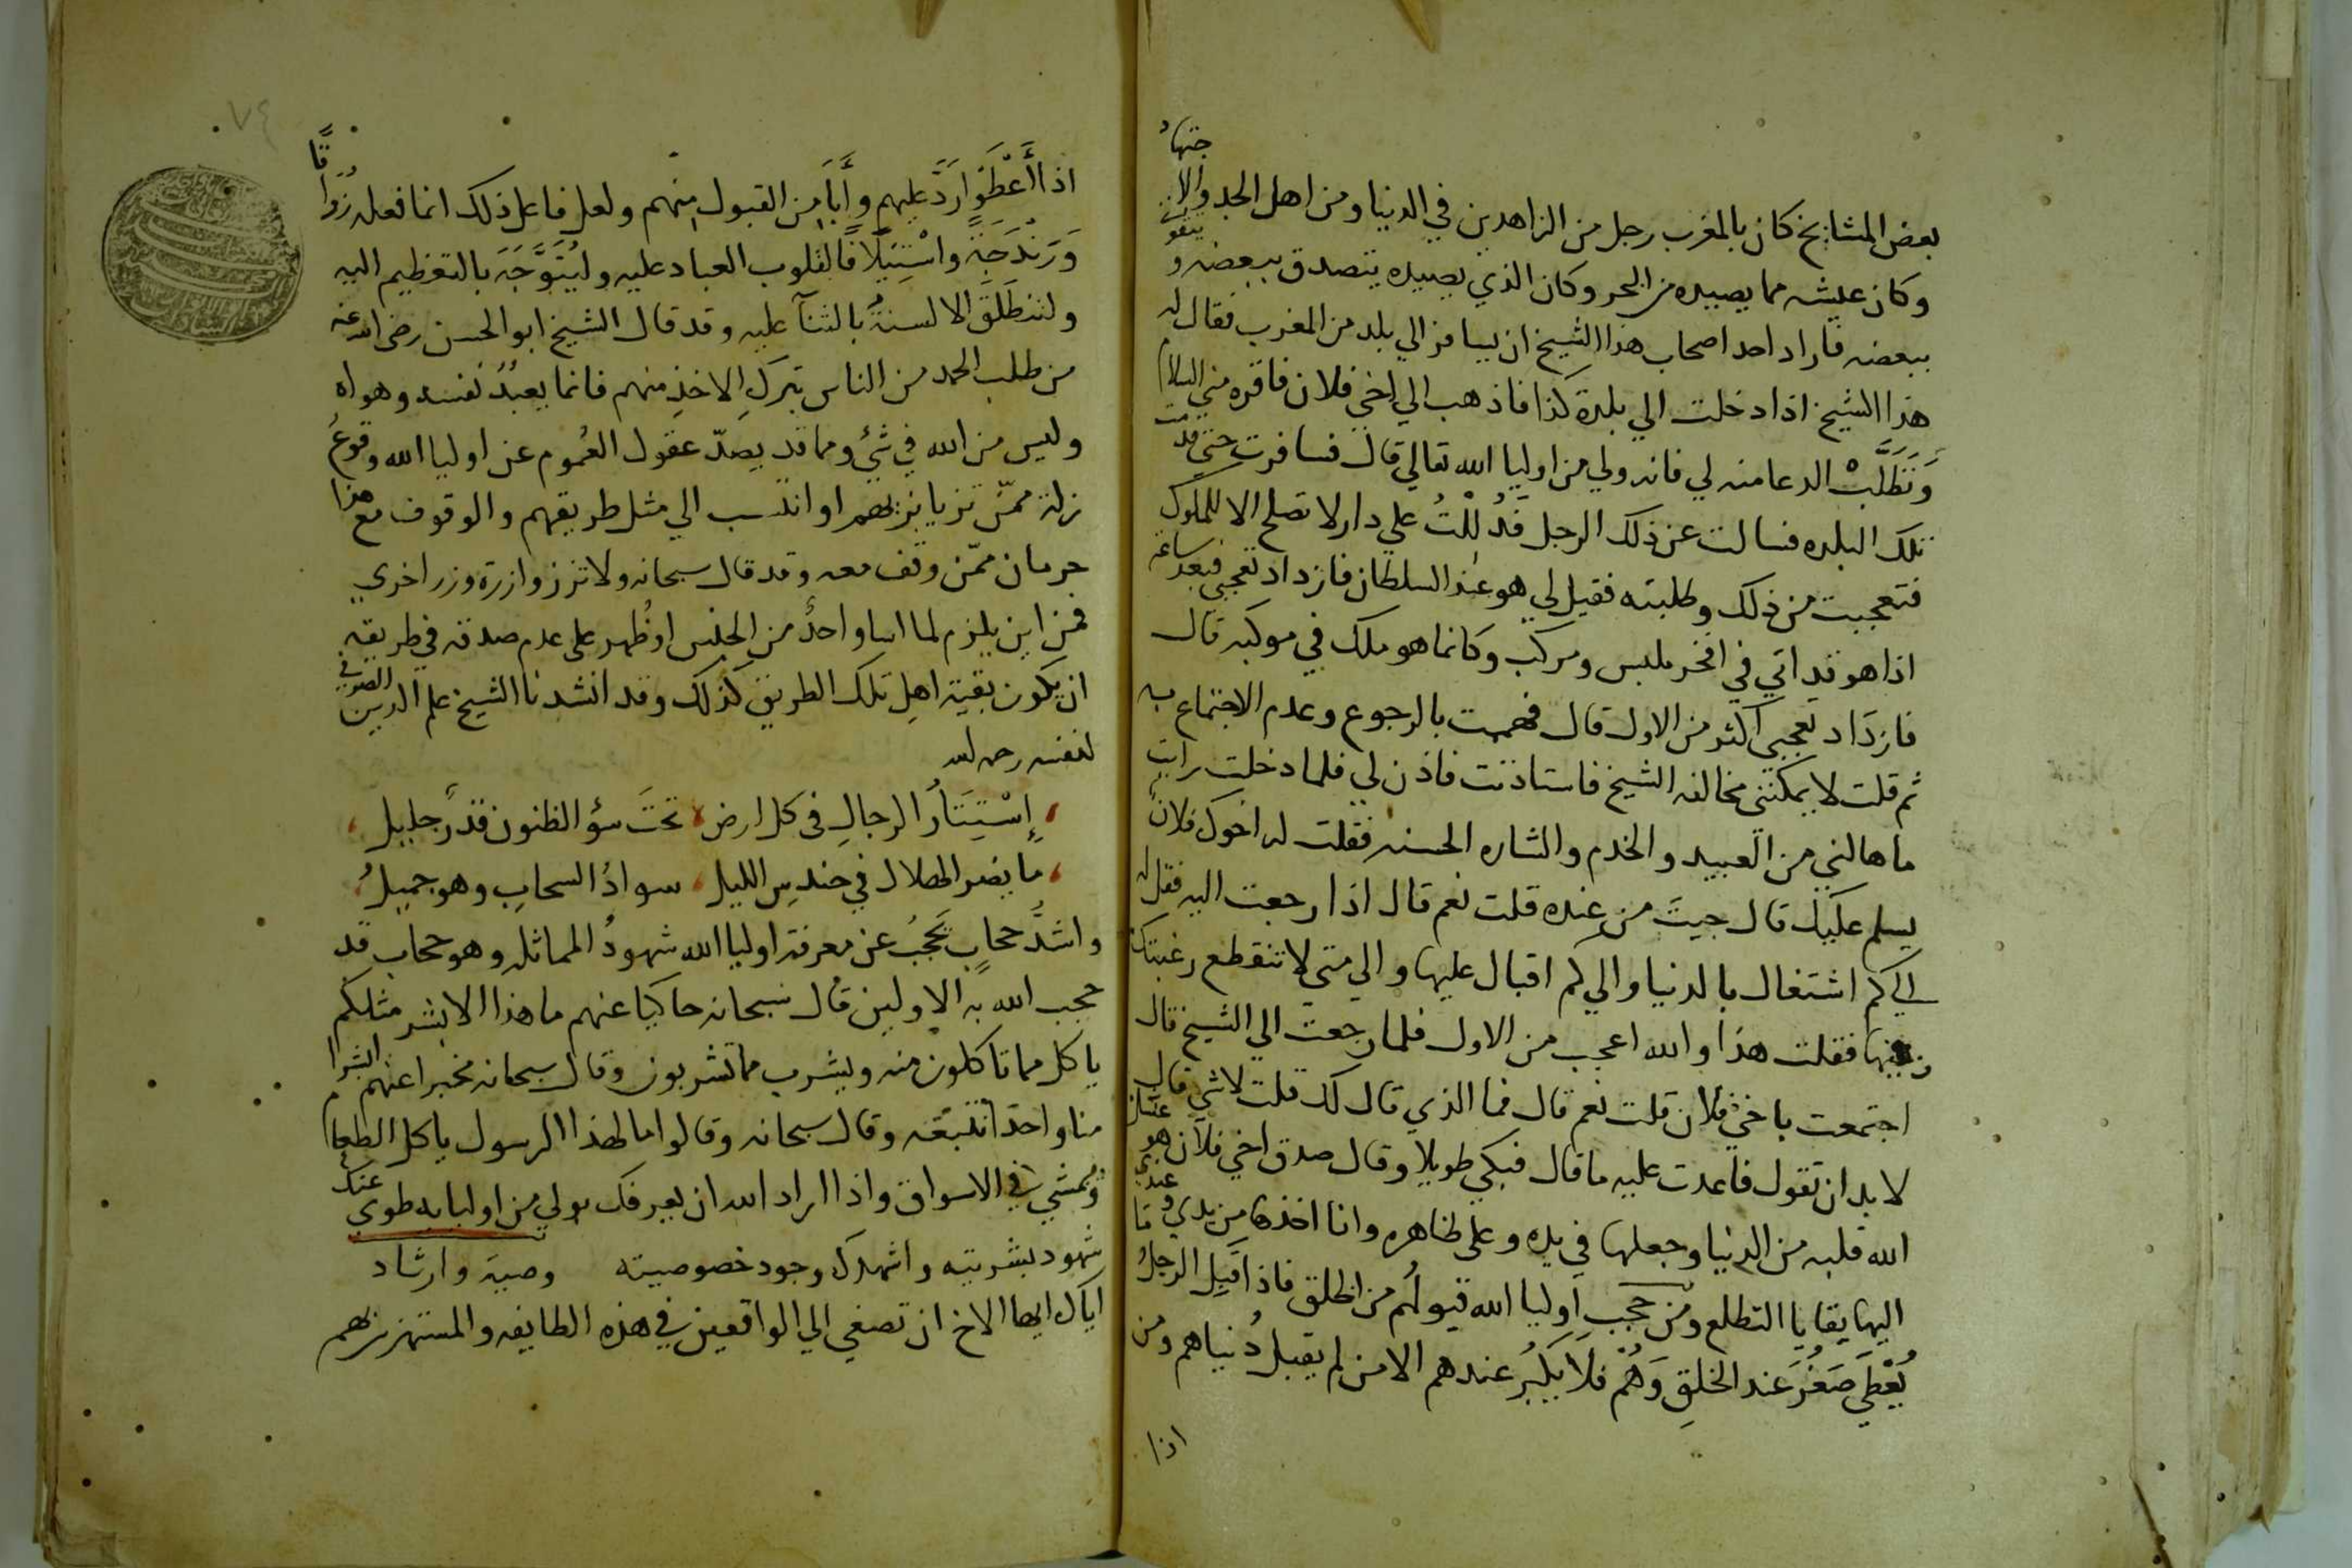 بعض المشايخ كان بالمغرب رجل من الزاهدين في الدنيا ومن اهل الجد والاجتهاد
وكان عيشه مما يصيده من البحر وكان الذي يصيده يتصدق ببعضه ويتقوت
ببعضه فاراد احد اصحاب هذا الشيخ ان يسافر الي بلد من المغرب فقال له
هذا الشيخ اذا دخلت الي بلدة كذا فاذهب الي اخي فلان فاقره مني السلام
وتطلب الدعا منه لي فانه ولي من اوليا الله تعالي قال فسافرت حتي قدمت
تلك البلده فسالت عن ذلك الرجل فدللت علي دار لا تصلح الا للملوك
فتعجبت من ذلك وطلبته فقيل لي هو عند السلطان فازداد تعجبي فبعد ساعة
اذا هو قد اتي في افخر ملبس ومركب وكانما هو ملك في موكبه قال
فازداد تعجبي اكثر من الاول قال فهممت بالرجوع وعدم الاجتماع به
ثم قلت لا يمكنني مخالفه الشيخ فاستاذنت فاذن لي فلما دخلت رايت
ما هالني من العبيد والخدم والشاره الحسنه فقلت له اخوك فلان
يسلم عليك قال جيت من عنده قلت نعم قال اذا رجعت اليه فقل له
الي كم اشتغال بالدنيا والي كم اقبال عليها والي متي لا تنقطع رغبتك
فيها فقلت هذا والله اعجب من الاول فلما رجعت الي الشيخ قال
اجتمعت باخي فلان قلت نعم قال فما الذي قال لك قلت لا شي قال
لا بد ان تقول فاعدت عليه ما قال فبكي طويلا وقال صدق اخي فلان هو غسل
الله قلبه من الدنيا وجعلها في يده وعلى ظاهره وانا اخذها من يدي وعندي
اليها بقايا التطلع ومن حجب اوليا الله قبولهم من الخلق فاذا قبل الرجل ما
يعطي صغر عند الخلق وهم فلا يكبر عندهم الا من لم يقبل دنياهم ومن
اذا
٧٤
اذا اعطوا رد عليهم وابا من القبول منهم ولعل فاعل ذلك انما فعله زواقا
وزندجة واستيلافا لقلوب العباد عليه وليتوجه بالتعظيم اليه
ولتنطلق الالسنة بالثنآ عليه وقد قال الشيخ ابو الحسن رضي الله عنه
من طلب الحمد من الناس بترك الاخذ منهم فانما يعبد نفسه وهواه
وليس من الله في شئ ومما قد يصد عقول العموم عن اوليا الله وقوع
زلة ممن تزيا بزيهم او انتسب الي مثل طريقهم والوقوف مع هذا
حرمان ممن وقف معه وقد قال سبحانه ولا تزر وازرة وزر اخري
فمن اين يلزم لما اسا واحد من الجنس او ظهر على عدم صدقه في طريقه
ان يكون بقية اهل تلك الطريق كذلك وقد انشدنا الشيخ علم الدين الصوفي
لنفسه رحمه الله
إستتار الرجال في كل ارض تحت سؤ الظنون قدر جليل
ما يضر الهلال في حندس الليل سواد السحاب وهو جميل
واشد حجاب يحجب عن معرفة اوليا الله شهود المماثله وهو حجاب قد
حجب الله به الاولين قال سبحانه حاكيا عنهم ما هذا الا بشر مثلكم
ياكل مما تاكلون منه ويشرب مما تشربون وقال سبحانه مخبرا عنهم ابشرا
منا واحدا نتبعه وقال سبحانه وقالوا ما لهذا الرسول ياكل الطعام
ويمشي في الاسواق واذا اراد الله ان يعرفك بولي من اوليايه طوي عنك
شهود بشريته واشهدك وجود خصوصيته وصية وارشاد
اياك ايها الاخ ان تصغي الي الواقعين في هذه الطايفه والمستهزئين بهم